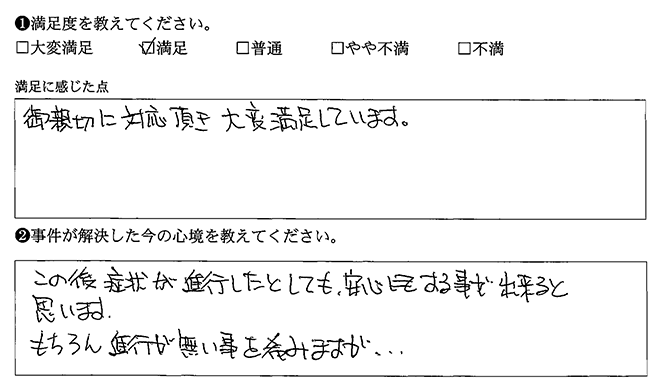 ❶満足度を教えてください。
□大変満足 ☑満足 □普通 □やや不満 □不満
満足に感じた点
御親切に対応頂き 大変満足しています。
❷事件が解決した今の心境を教えてください。
この後 症状が 進行したとしても、安心する事が出来ると
思います。
もちろん 進行が無い事を希みますが、...